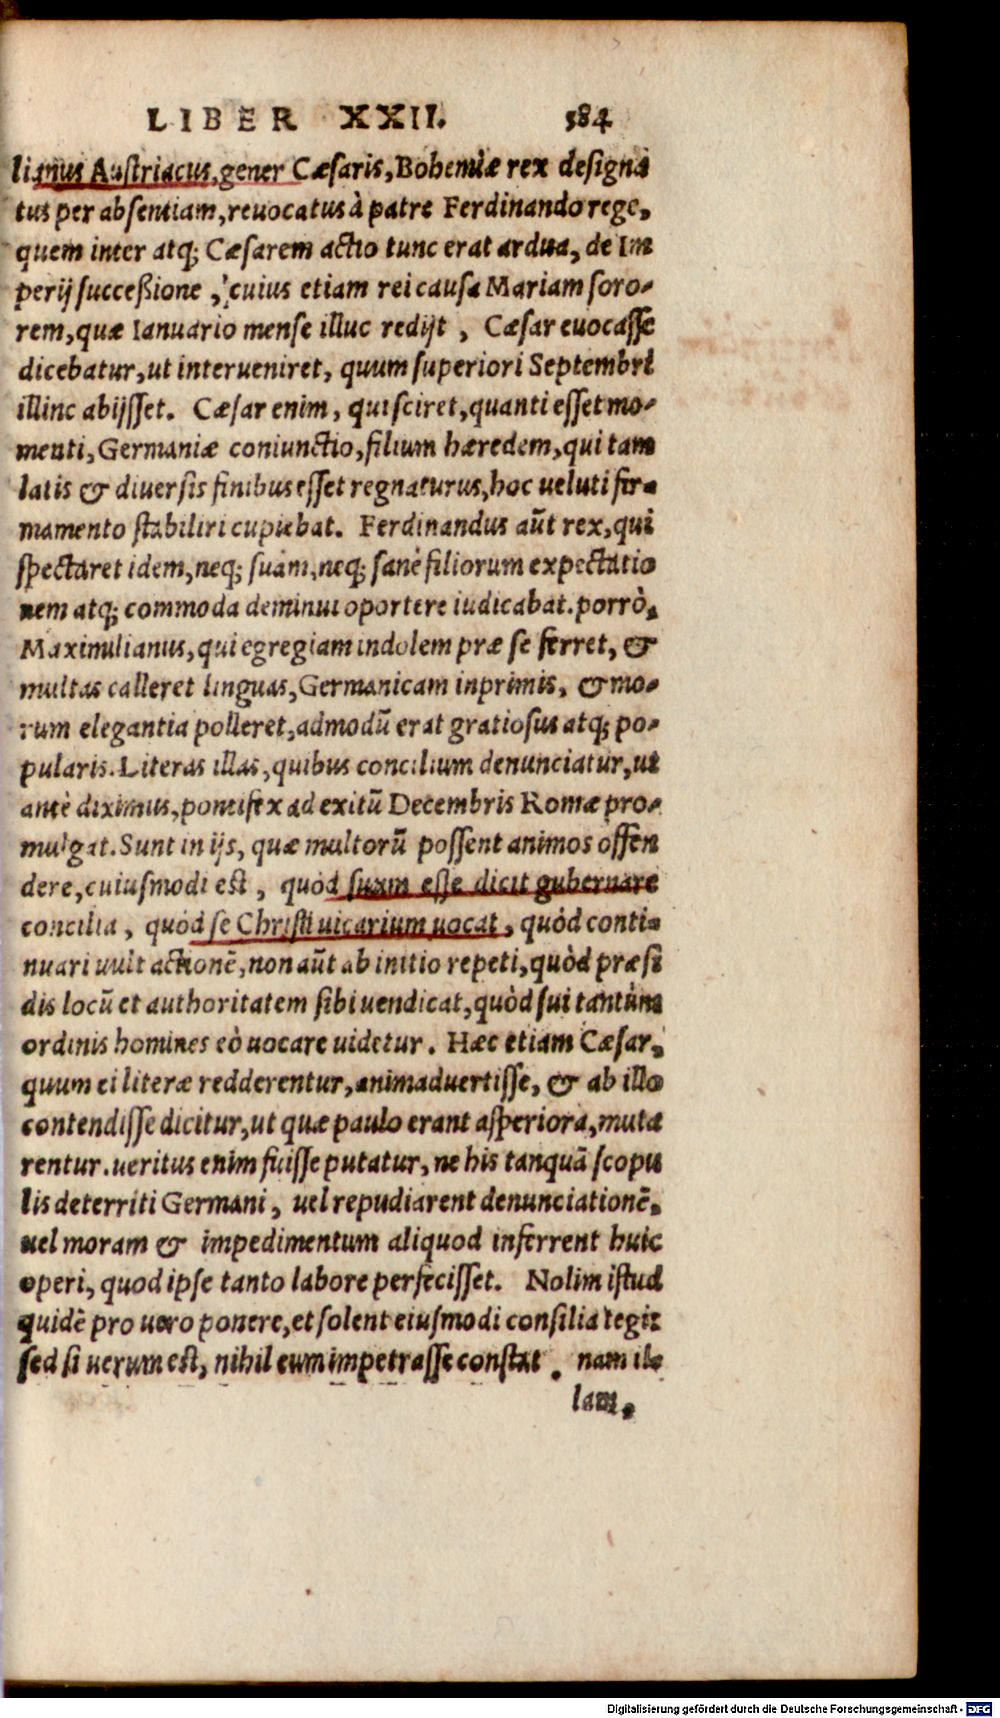 LIBER XXII. 584
lianus Austriacus, gener Cæsaris, Bohemiæ rex designa
tus per absentiam, reuocatus à patre Ferdinando rege,
quem inter atq; Cæsarem actio tunc erat ardua, de Im
perij succeßione, cuius etiam rei causa Mariam soro-
rem, quæ Ianuario mense illuc redijt, Cæsar euocasse
dicebatur, ut interueniret, quum superiori Septembri
illinc abijsset. Cæsar enim, qui sciret, quanti esset mo-
menti, Germaniæ coniunctio, filium hæredem, qui tam
latis & diuersis finibus esset regnaturus, hoc ueluti fir-
mamento stabiliri cupiebat. Ferdinandus aũt rex, qui
spectaret idem, neq; suam, neq; sanè filiorum expectatio
nem atq; commoda deminui oportere iudicabat. porrò,
Maximilianus, qui egregiam indolem præ se ferret, &
multas calleret linguas, Germanicam inprimis, & mo-
rum elegantia polleret, admodũ erat gratiosus atq; po-
pularis. Literas illas, quibus concilium denunciatur, ut
antè diximus, pontifex ad exitũ Decembris Romæ pro-
mulgat. Sunt in ijs, quæ multorũ possent animos offen
dere, cuiusmodi est, quòd suum esse dicit gubernare
concilia, quòd se Christi uicarium uocat, quòd conti-
nuari uult actionẽ, non aũt ab initio repeti, quòd præsi
dis locũ et authoritatem sibi uendicat, quòd sui tantùm
ordinis homines eò uocare uidetur. Hæc etiam Cæsar,
quum ei literæ redderentur, animaduertisse, & ab illo
contendisse dicitur, ut quæ paulo erant asperiora, muta
rentur. ueritus enim fuisse putatur, ne his tanquã scopu
lis deterriti Germani, uel repudiarent denunciationẽ,
uel moram & impedimentum aliquod inferrent huic
operi, quod ipse tanto labore perfecisset. Nolim istud
quidẽ pro uero ponere, et solent eiusmodi consilia tegi:
sed si uerum est, nihil eum impetrasse constat. nam il-
lam,
Digitalisierung gefördert durch die Deutsche Forschungsgemeinschaft - DFG